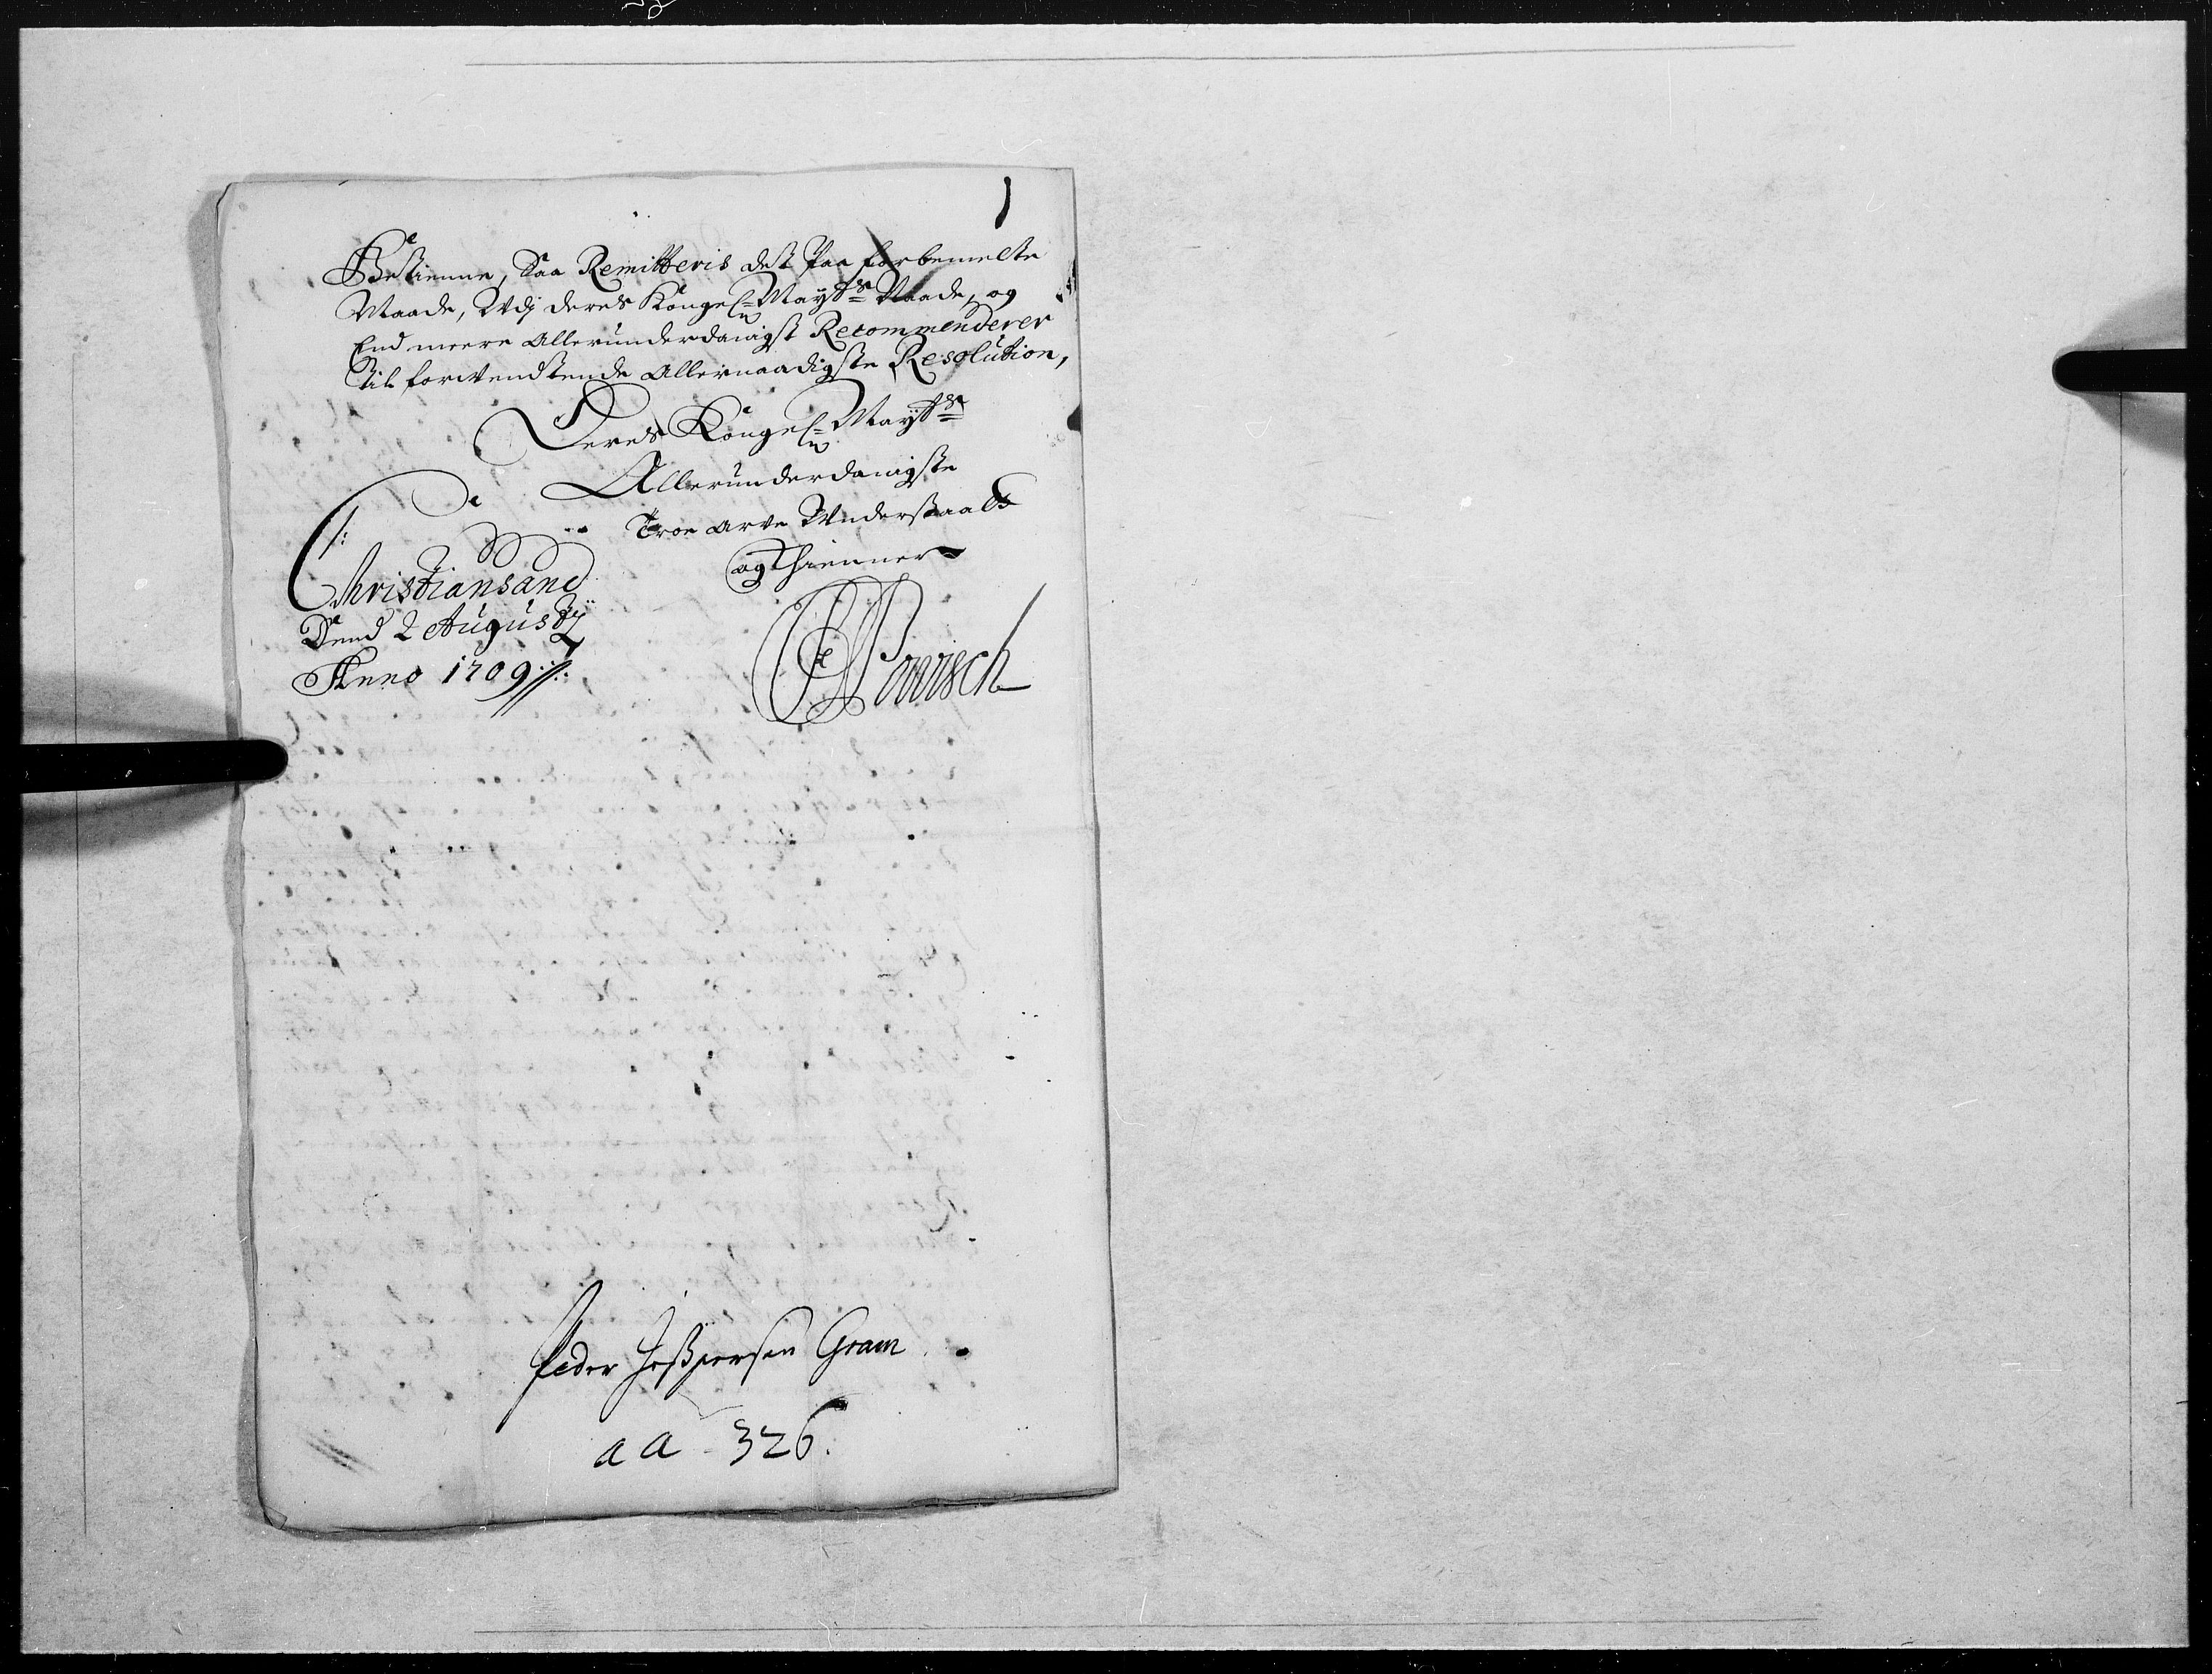 Betienne, Saa Remitteris det Paa forbemelte
Maade, Udj deres Kongel: Maytts Naade, og
End meere Allerunderdanigst Recommenderer
til forventende Allernaadigste Resolution,
Deres Kongel: Maytts
Allerunderdanigste
Troe Arve Understaat
og Thienner
Christiansand
Dend 2 Augustij
Anno 1709
Powisch
Peder Jeßpersen Gram
aa - 326.